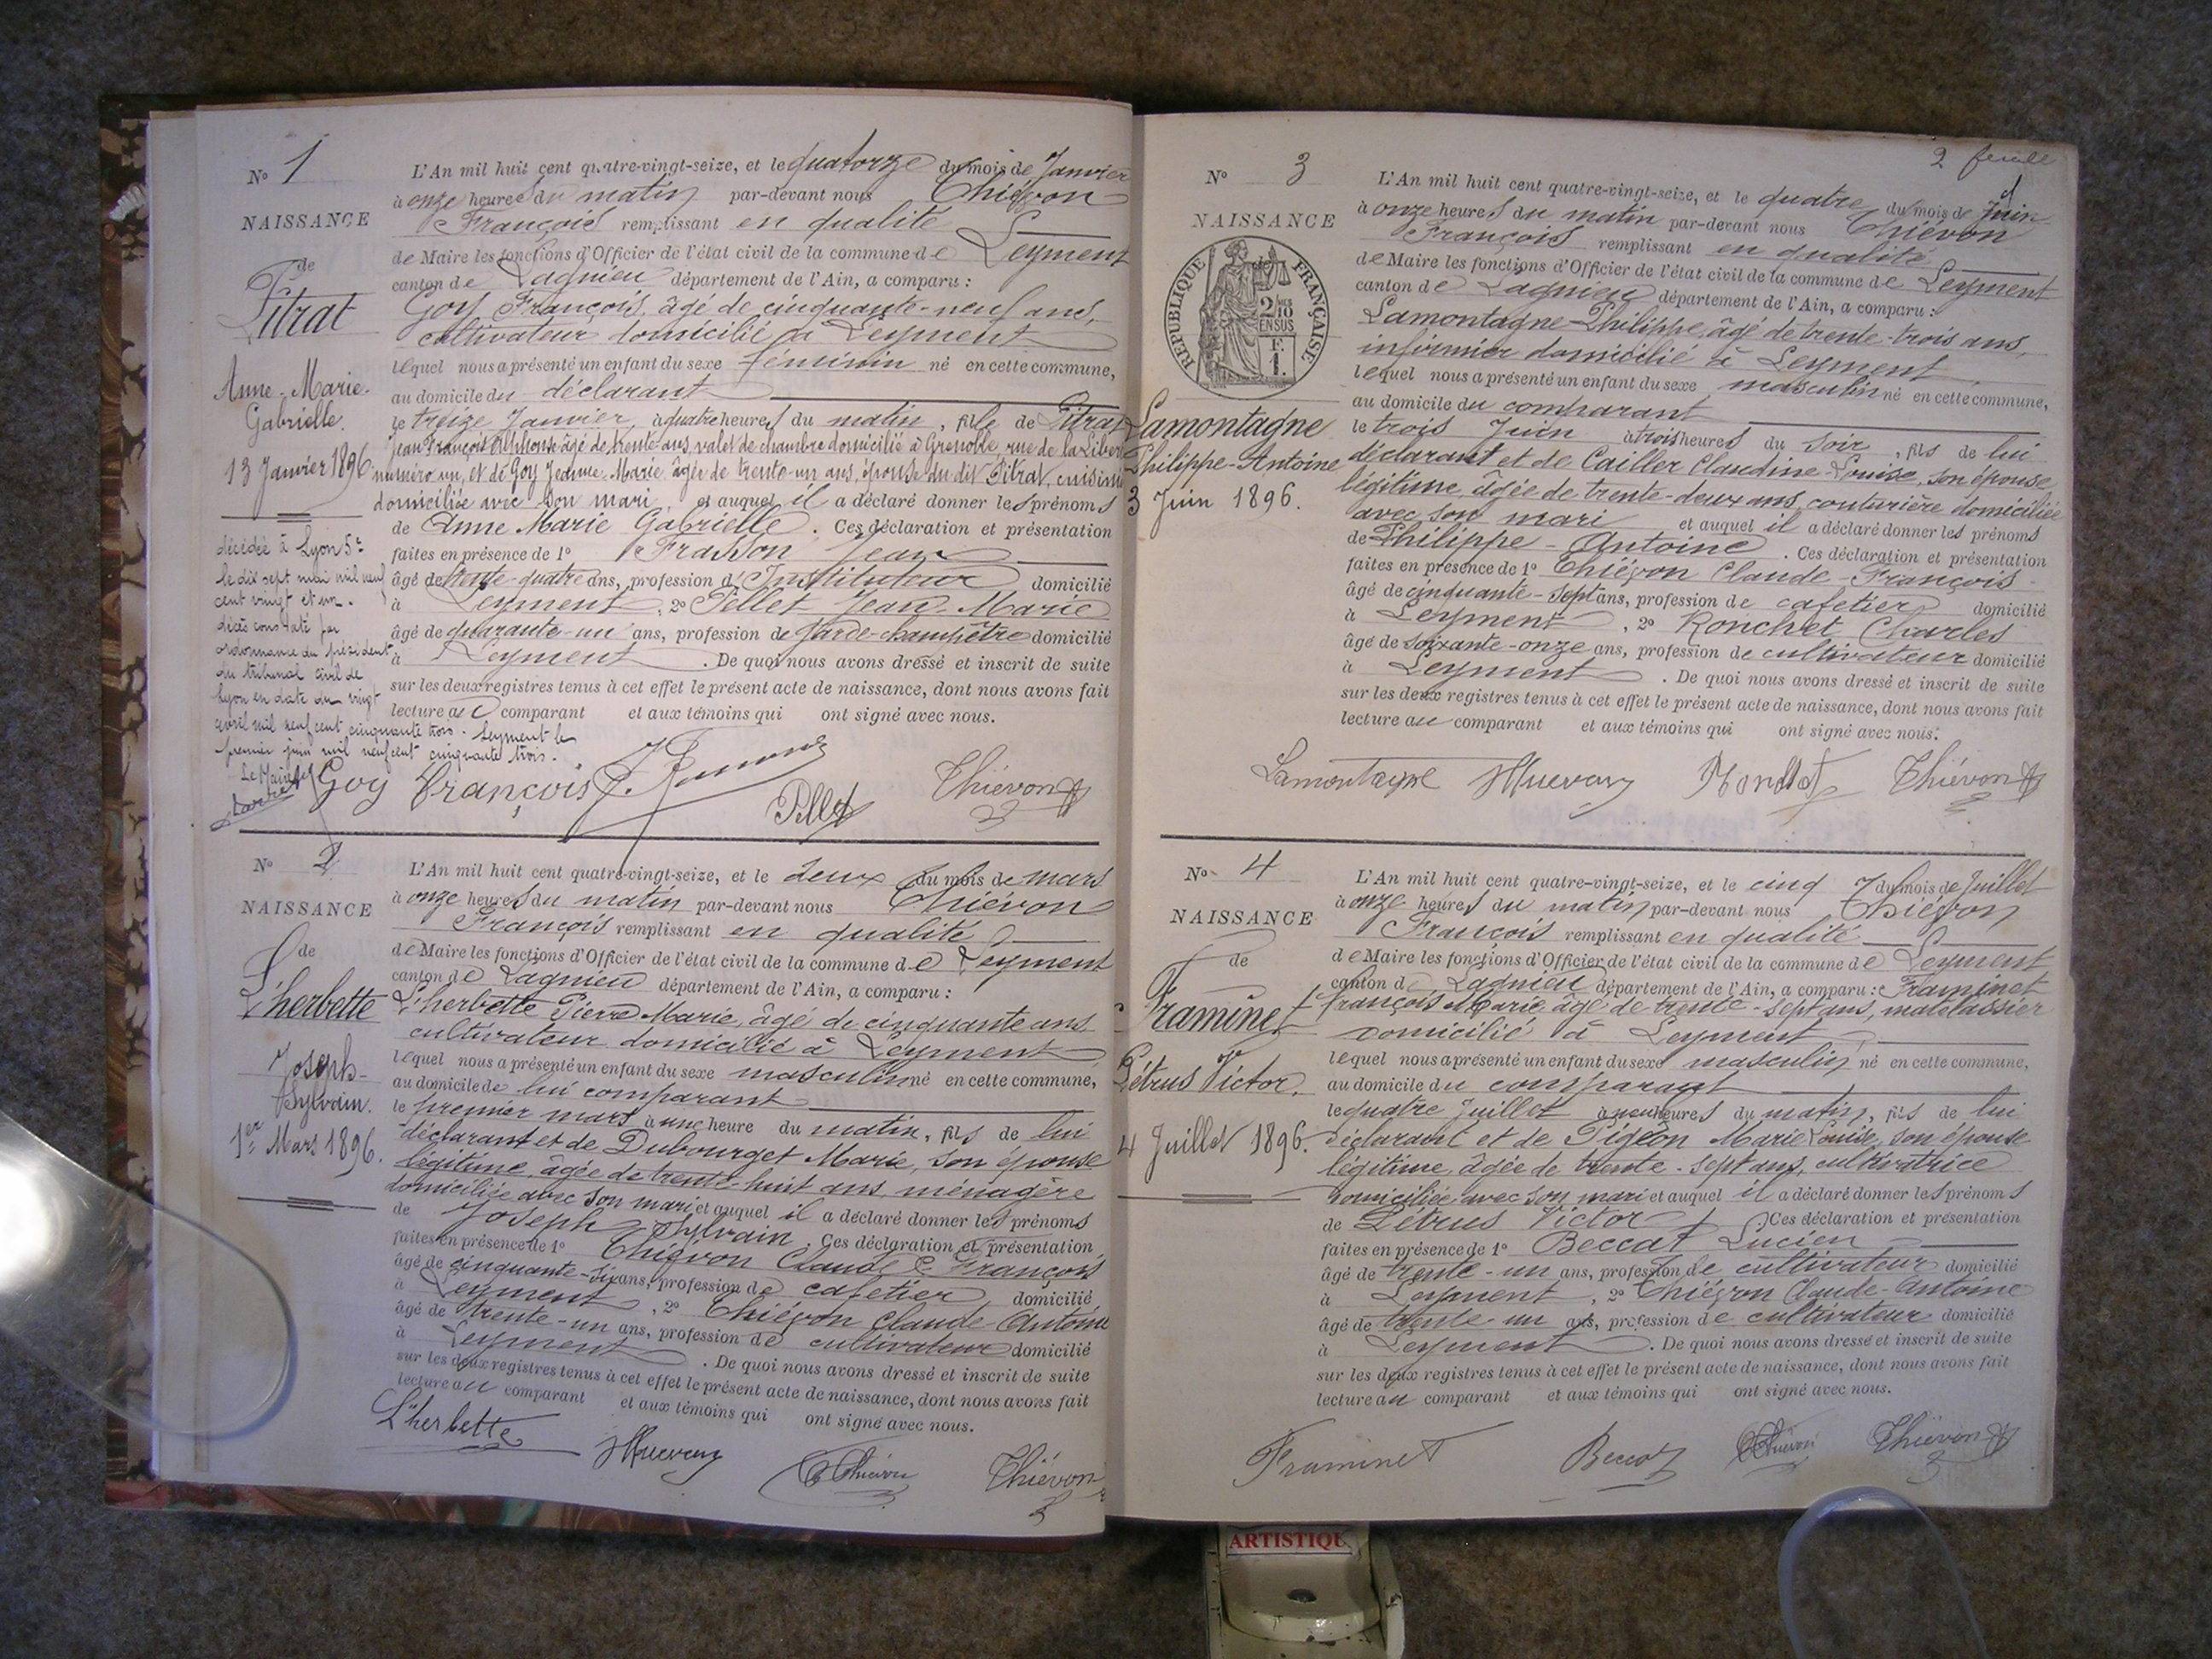 No 1
NAISSANCE
de
Pitrat
Anne-Marie-
Gabrielle.
13 Janvier 1896.
décédée à Lyon 5e
le dix sept mai mil neuf
cent vingt et un.
décès constaté par
ordonnance du président
du tribunal civil de
Lyon en date du vingt
avril mil neuf cent cinquante trois. Leyment le
premier juin mil neuf cent cinquante trois.
Le Maire
L'An mil huit cent quatre-vingt-seize, et le quatorze du mois de Janvier
à onze heures du matin par-devant nous Thiévon
François remplissant en qualité
de Maire les fonctions d'Officier de l'état civil de la commune de Leyment
canton de Lagnieu département de l'Ain, a comparu :
Goy François, âgé de cinquante-neuf ans,
cultivateur domicilié à Leyment
lequel nous a présenté un enfant du sexe féminin né en cette commune,
au domicile du déclarant
le treize Janvier, à quatre heures du matin, fille de Pitrat
Jean François Alphonse âgé de trente ans, valet de chambre domicilié à Grenoble, rue de la Liberté
numéro un, et de Goy Jeanne-Marie âgée de trente-un ans, épouse du dit Pitrat, cuisinière
domiciliée avec son mari et auquel il a déclaré donner les prénoms
de Anne Marie Gabrielle. Ces déclaration et présentation
faites en présence de 1o Jean
âgé de trente-quatre ans, profession d'Instituteur domicilié
à Leyment, 2o Pellet Jean-Marie
âgé de quarante-un ans, profession de garde-champêtre domicilié
à Leyment. De quoi nous avons dressé et inscrit de suite
sur les deux registres tenus à cet effet le présent acte de naissance, dont nous avons fait
lecture au comparant et aux témoins qui ont signé avec nous.
Goy François Pellet Thiévon
No 2
NAISSANCE
de
L'herbette
Joseph-
Sylvain.
1er Mars 1896.
L'An mil huit cent quatre-vingt-seize, et le deux du mois de mars
à onze heures du matin par-devant nous Thiévon
François remplissant en qualité
de Maire les fonctions d'Officier de l'état civil de la commune de Leyment
canton de Lagnieu département de l'Ain, a comparu :
L'herbette Pierre Marie, âgé de cinquante ans
cultivateur domicilié à Leyment
lequel nous a présenté un enfant du sexe masculin né en cette commune,
au domicile de lui comparant
le premier mars à une heure du matin, fils de lui
déclarant et de Dubourget Marie, son épouse
légitime, âgée de trente-huit ans, ménagère
domiciliée avec son mari et auquel il a déclaré donner les prénoms
de Joseph-Sylvain. Ces déclaration et présentation
faites en présence de 1o Thiévon Claude François
âgé de cinquante-six ans, profession de cafetier domicilié
à Leyment, 2o Thiévon Claude-Antoine
âgé de trente-un ans, profession de cultivateur domicilié
à Leyment. De quoi nous avons dressé et inscrit de suite
sur les deux registres tenus à cet effet le présent acte de naissance, dont nous avons fait
lecture au comparant et aux témoins qui ont signé avec nous.
L'herbette Thiévon Thiévon
2 feuille
No 3
NAISSANCE
REPUBLIQUE FRANÇAISE
2/10 EN SUS
1 F.
Lamontagne
Philippe-Antoine
3 Juin 1896.
L'An mil huit cent quatre-vingt-seize, et le quatre du mois de Juin
à onze heures du matin par-devant nous Thiévon
François remplissant en qualité
de Maire les fonctions d'Officier de l'état civil de la commune de Leyment
canton de Lagnieu département de l'Ain, a comparu :
Lamontagne Philippe, âgé de trente-trois ans,
infirmier domicilié à Leyment
lequel nous a présenté un enfant du sexe masculin né en cette commune,
au domicile du comparant
le trois Juin à trois heures du soir, fils de lui
déclarant et de Cailler Claudine Louise, son épouse
légitime, âgée de trente-deux ans, couturière domiciliée
avec son mari et auquel il a déclaré donner les prénoms
de Philippe-Antoine. Ces déclaration et présentation
faites en présence de 1o Thiévon Claude-François
âgé de cinquante-sept ans, profession de cafetier domicilié
à Leyment, 2o Ronchet Charles
âgé de soixante-onze ans, profession de cultivateur domicilié
à Leyment. De quoi nous avons dressé et inscrit de suite
sur les deux registres tenus à cet effet le présent acte de naissance, dont nous avons fait
lecture au comparant et aux témoins qui ont signé avec nous.
Lamontagne Thiévon
No 4
NAISSANCE
de
Framinet
Pétrus Victor.
4 Juillet 1896.
L'An mil huit cent quatre-vingt-seize, et le cinq du mois de Juillet
à onze heures du matin par-devant nous Thiévon
François remplissant en qualité
de Maire les fonctions d'Officier de l'état civil de la commune de Leyment
canton de Lagnieu département de l'Ain, a comparu : Framinet
François Marie, âgé de trente-sept ans, matelassier
domicilié à Leyment
lequel nous a présenté un enfant du sexe masculin né en cette commune,
au domicile du comparant
le quatre Juillet à heures du matin, fils de lui
déclarant et de Pigeon Marie Louise, son épouse
légitime, âgée de trente-sept ans, cultivatrice
domiciliée avec son mari et auquel il a déclaré donner les prénoms
de Pétrus Victor. Ces déclaration et présentation
faites en présence de 1o Beccat Lucien
âgé de trente-un ans, profession de cultivateur domicilié
à Leyment, 2o Thiévon Claude-Antoine
âgé de trente un ans, profession de cultivateur domicilié
à Leyment. De quoi nous avons dressé et inscrit de suite
sur les deux registres tenus à cet effet le présent acte de naissance, dont nous avons fait
lecture au comparant et aux témoins qui ont signé avec nous.
Framinet Beccat Thiévon Thiévon
ARTISTIQU